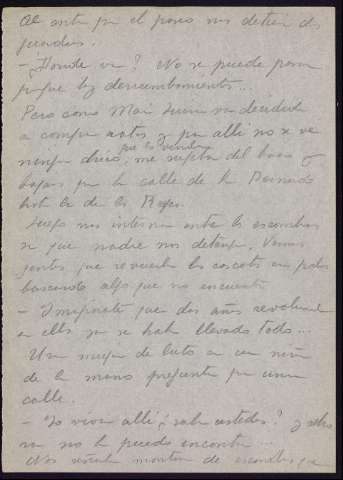 Al entrar por el paseo nos detienen dos
guardias.
– ¿Donde van? No se puede pasar
porque hay derrumbamientos...
Pero como Mari va decidida
a comprar y por allí no se ve
que lo venda
me sujeta del brazo y
bajamos por la calle de San Bernardo
hasta la de los Reyes.
Luego nos internamos entre los escombros
sin que nadie nos detenga. Vemos
gentes que revuelven los cascotes con palos
buscando algo que no encuentran
– que dos años revolviendo
en ellos ya se han llevado todo...
Una mujer de luto con un niño
de la mano pregunta por una
calle.
– Yo vivia allí, ¿saben ustedes? y ahora
no la puedo encontrar...
Nos señala montones de escombros y a